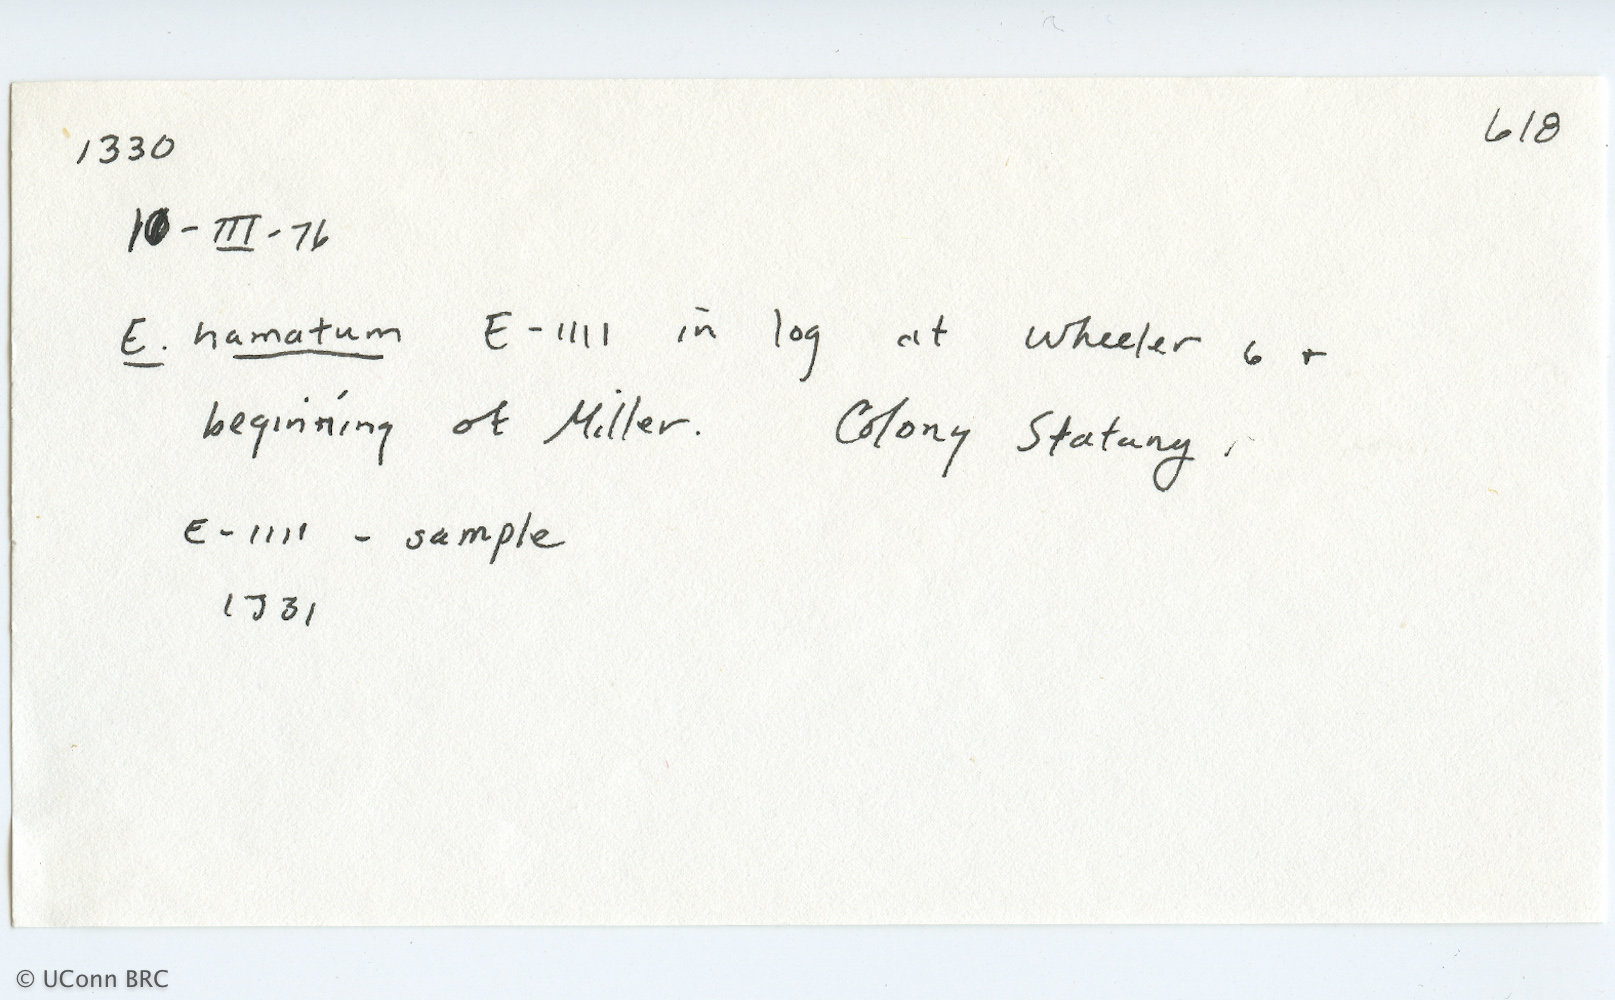 1330
618
10-III-76
E. hamatum E-1111 in log at Wheeler 6 +
beginning of Miller. Colony Statary.
E-1111 - sample
1331
© UConn BRC